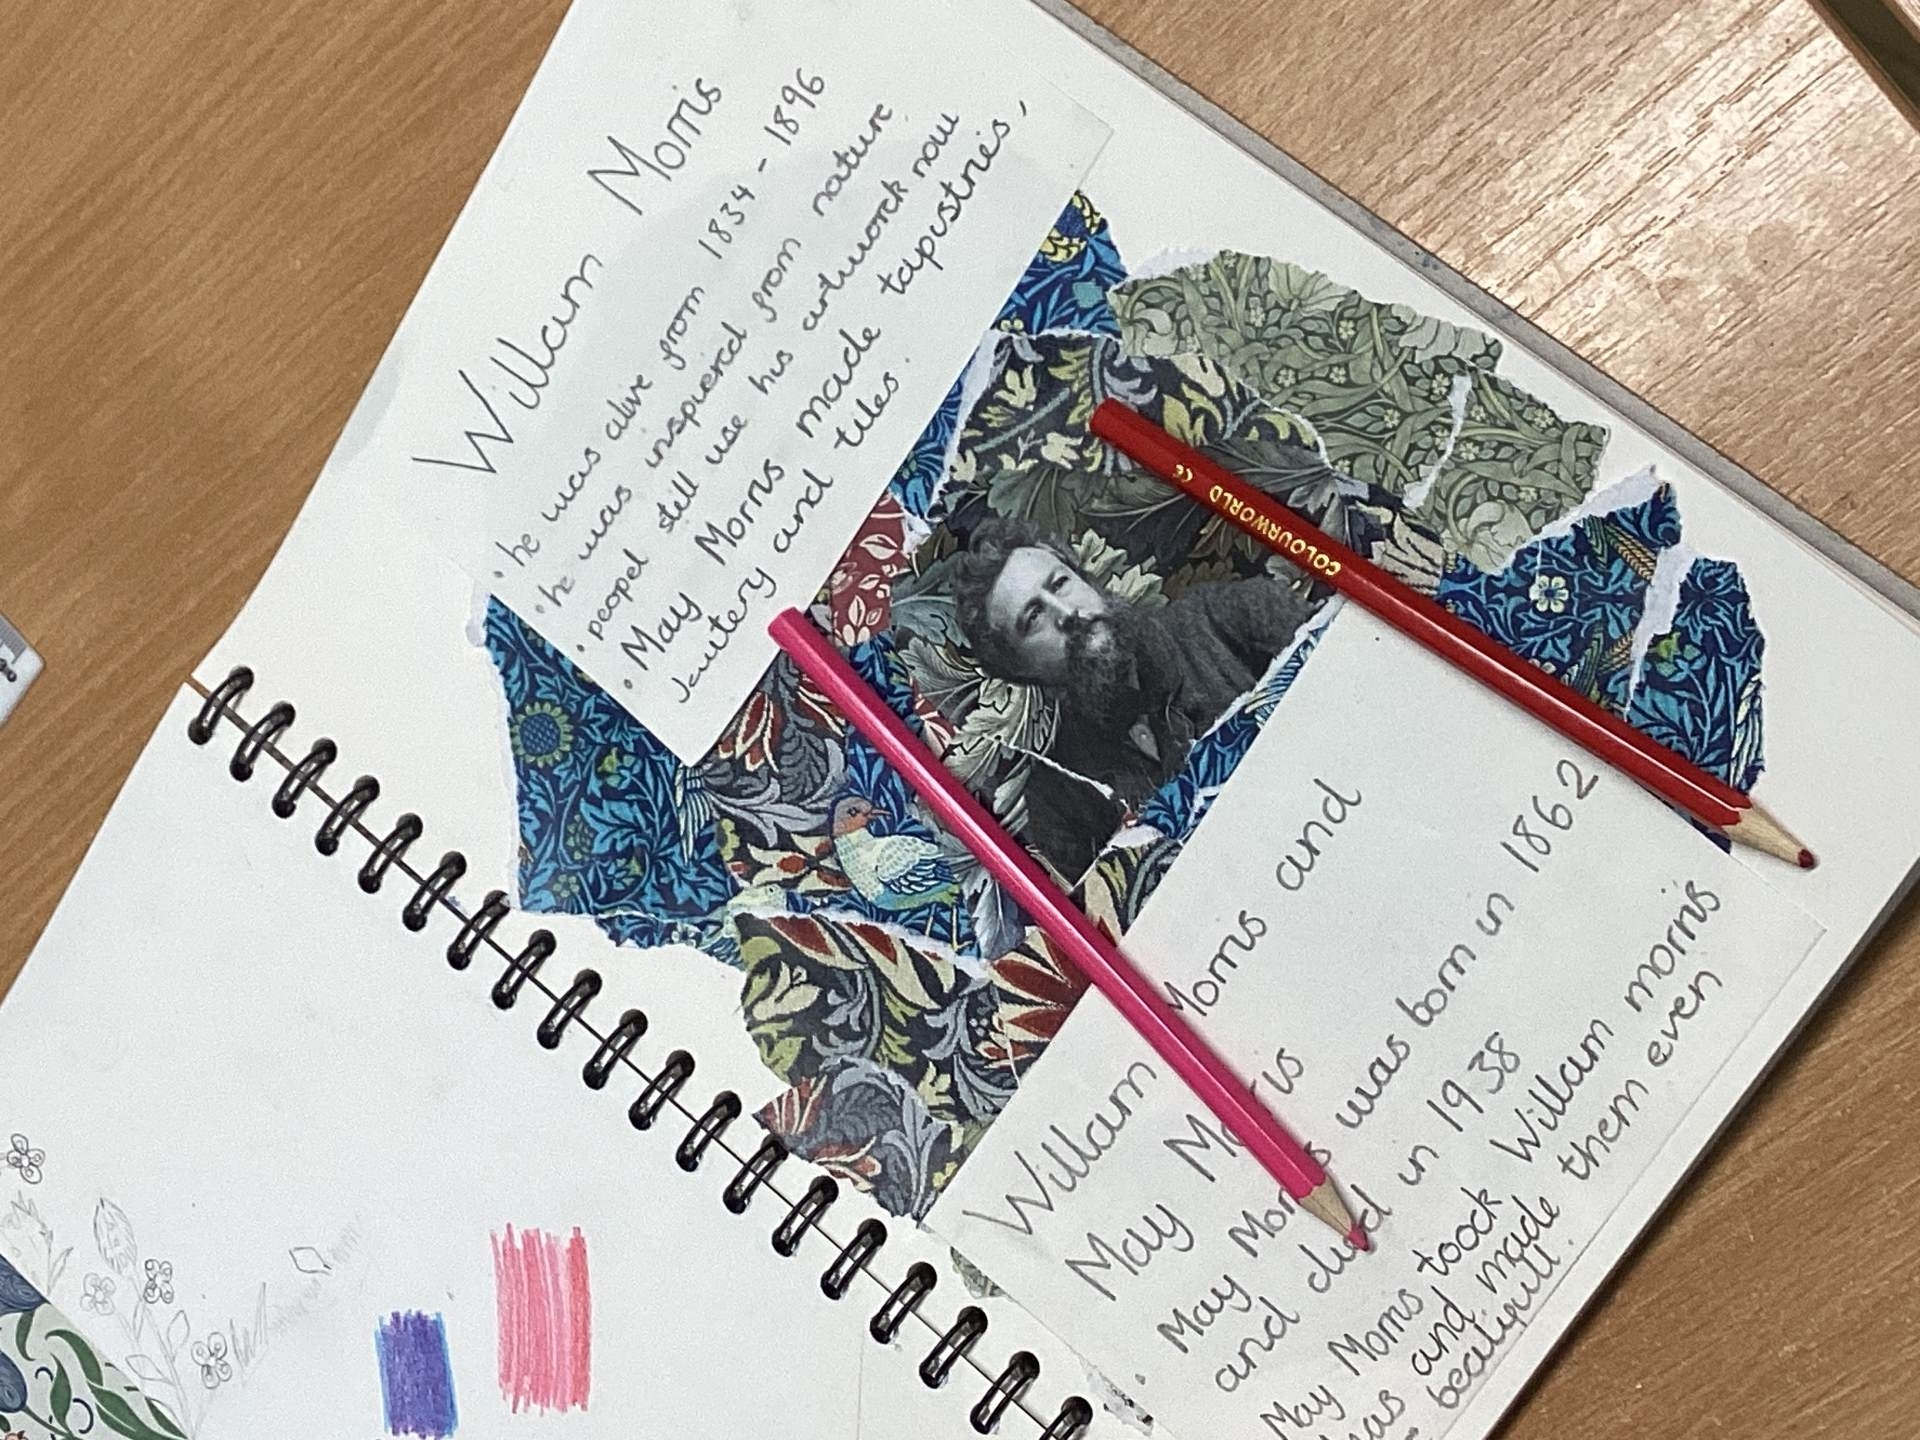 Willam Morris
• he was alive from 1834 - 1896
• he was inspired from nature
• peopel still use his artworck now
• May Morris made tapustries,
Jewtery and tiles.
COLOURWORLD CE
Willam Morris and
May
• May Morris was born in 1862
and died in 1938
May Morris toock Willam morris
and made them even
beatifull.